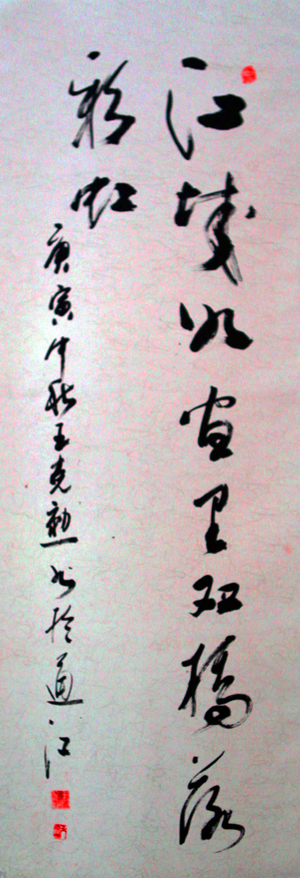 江城如画里双桥落
彩虹
庚寅中秋王克勤书于通江